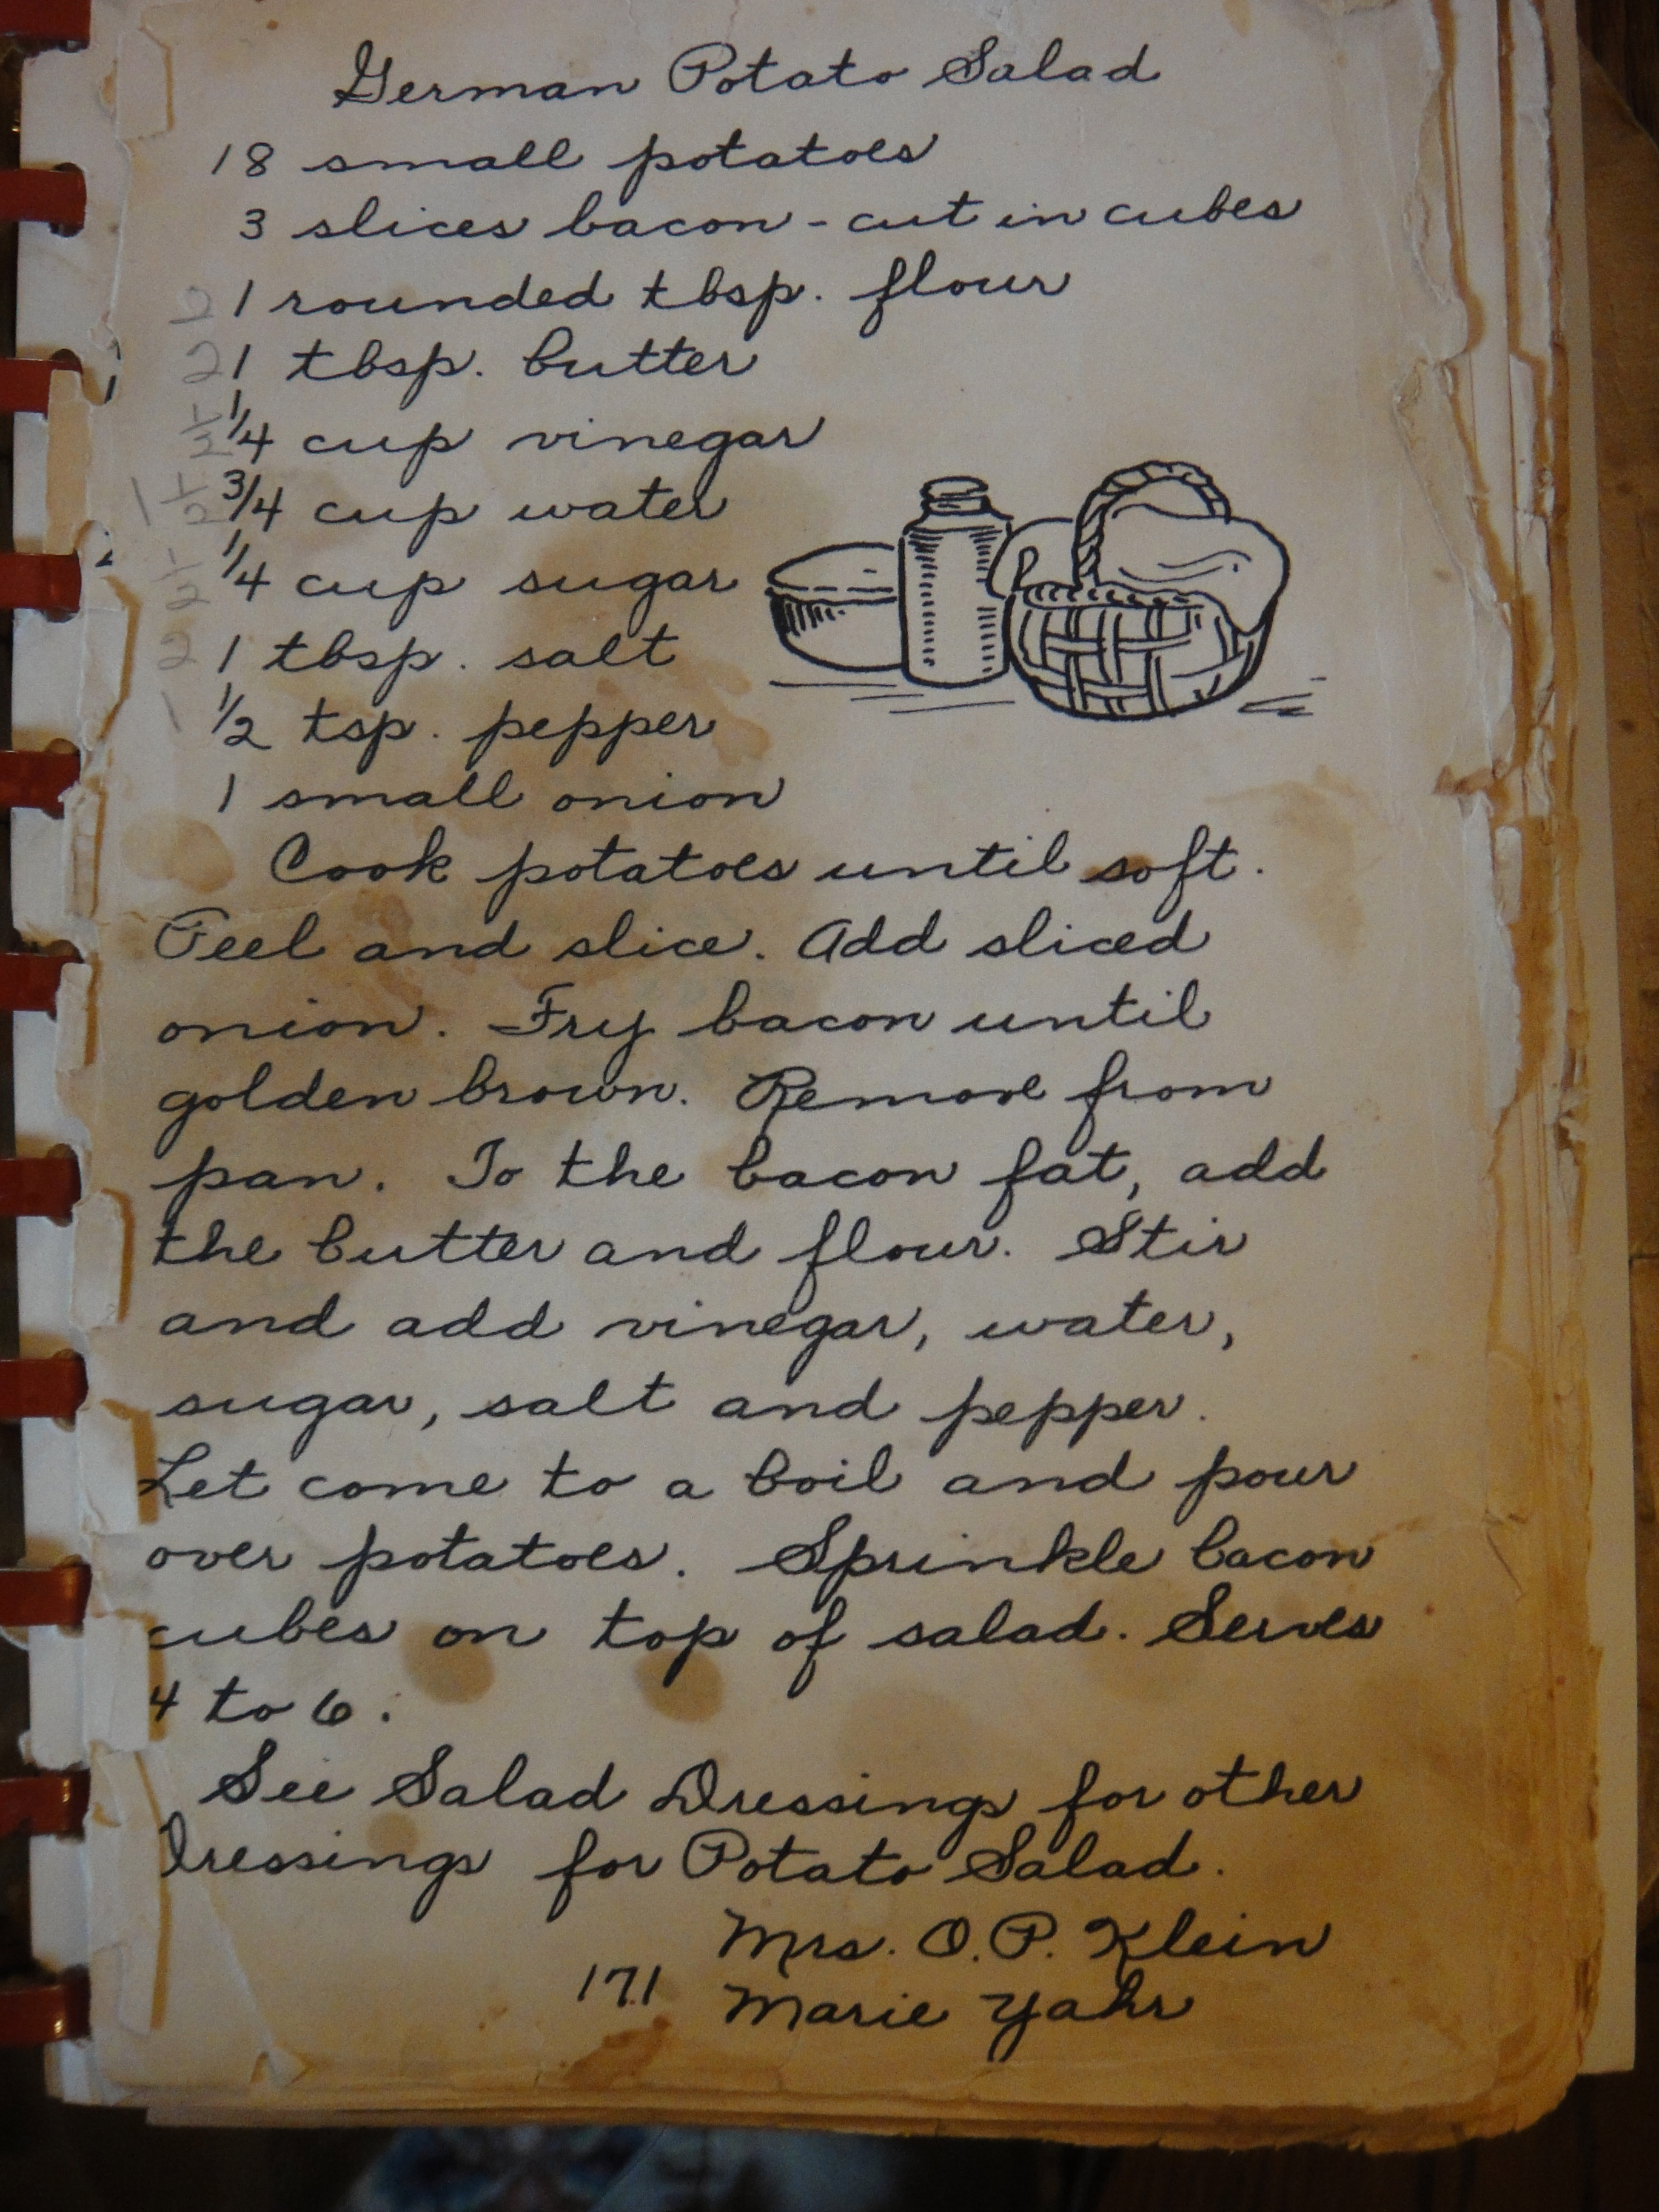 German Potato Salad
18 small potatoes
3 slices bacon - cut in cubes
2 1 rounded tbsp. flour
2 1 tbsp. butter
1/2 1/4 cup vinegar
1 1/2 3/4 cup water
1/2 1/4 cup sugar
2 1 tbsp. salt
1 1/2 tsp. pepper
1 small onion
Cook potatoes until soft.
Peel and slice. Add sliced
onion. Fry bacon until
golden brown. Remove from
pan. To the bacon fat, add
the butter and flour. Stir
and add vinegar, water,
sugar, salt and pepper.
Let come to a boil and pour
over potatoes. Sprinkle bacon
cubes on top of salad. Serves
4 to 6.
See Salad Dressings for other
Dressings for Potato Salad.
Mrs. O.P. Klein
171 Marie Yahr